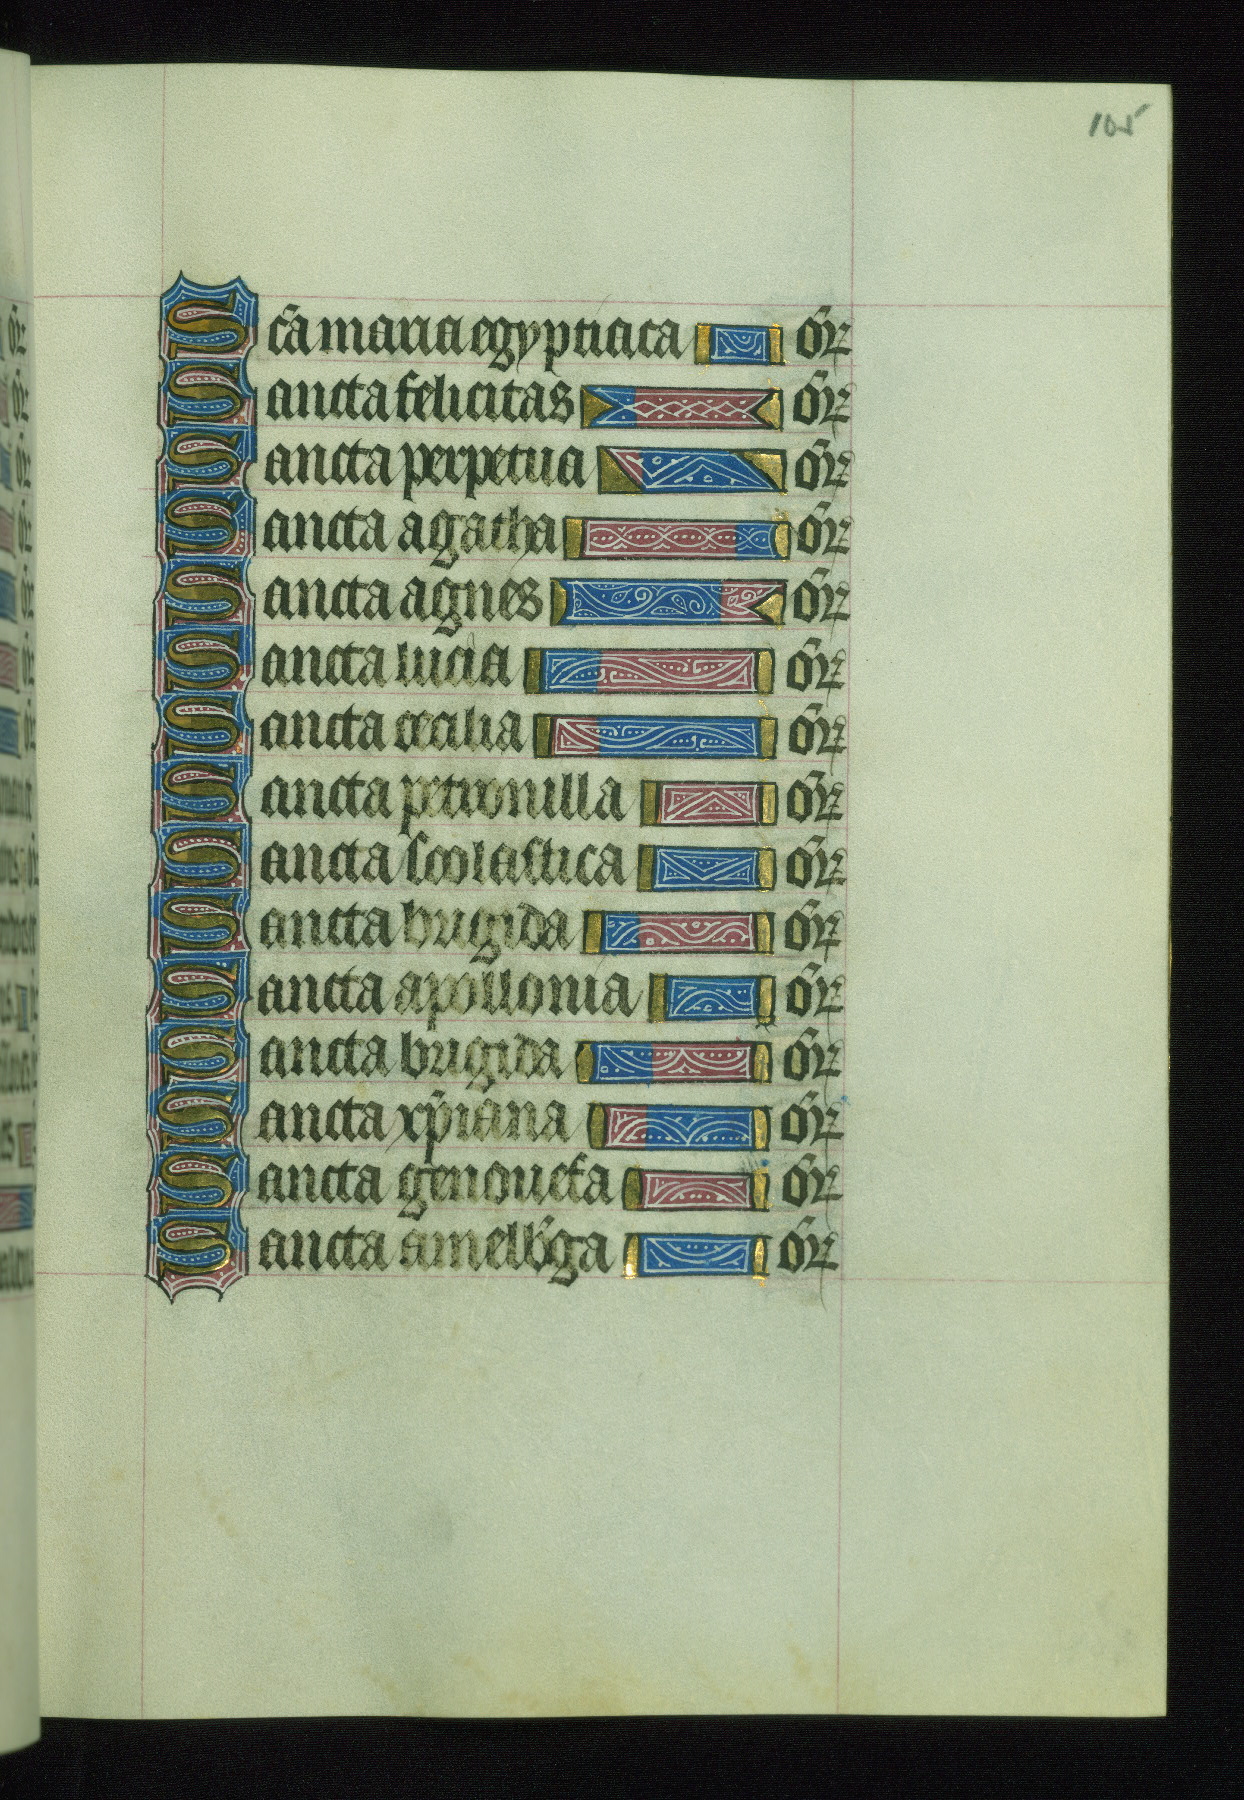 105
Sc̃a maria egyptiaca or̃
Sancta felicitas or̃
Sancta perpetua or̃
Sancta agatha or̃
Sancta agnes or̃
Sancta lucia or̃
Sancta cecilia or̃
Sancta petronilla or̃
Sancta scolastica or̃
Sancta brigida or̃
Sancta apollonia or̃
Sancta brigida or̃
Sancta xp̃iana or̃
Sancta genouefa or̃
Sancta amelb̾ga or̃